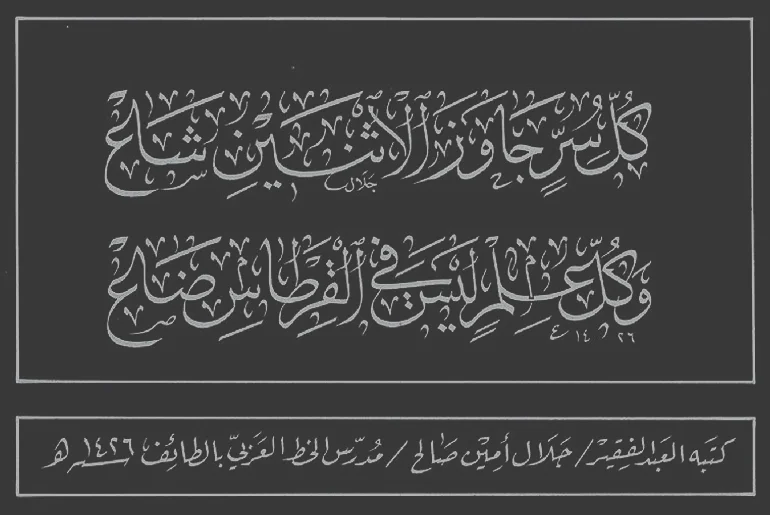 كُلُّ سِرٍّ جَاوَزَ الاثْنَيْنِ شَاعَ
جلال
وَكُلُّ عِلْمٍ لَيْسَ فِي الْقِرْطَاسِ ضَاعَ
١٤٢٦
كتبه العبد الفقير / جلال أمين صالح / مدرّس الخط العربيّ بالطائف ١٤٢٦ هـ